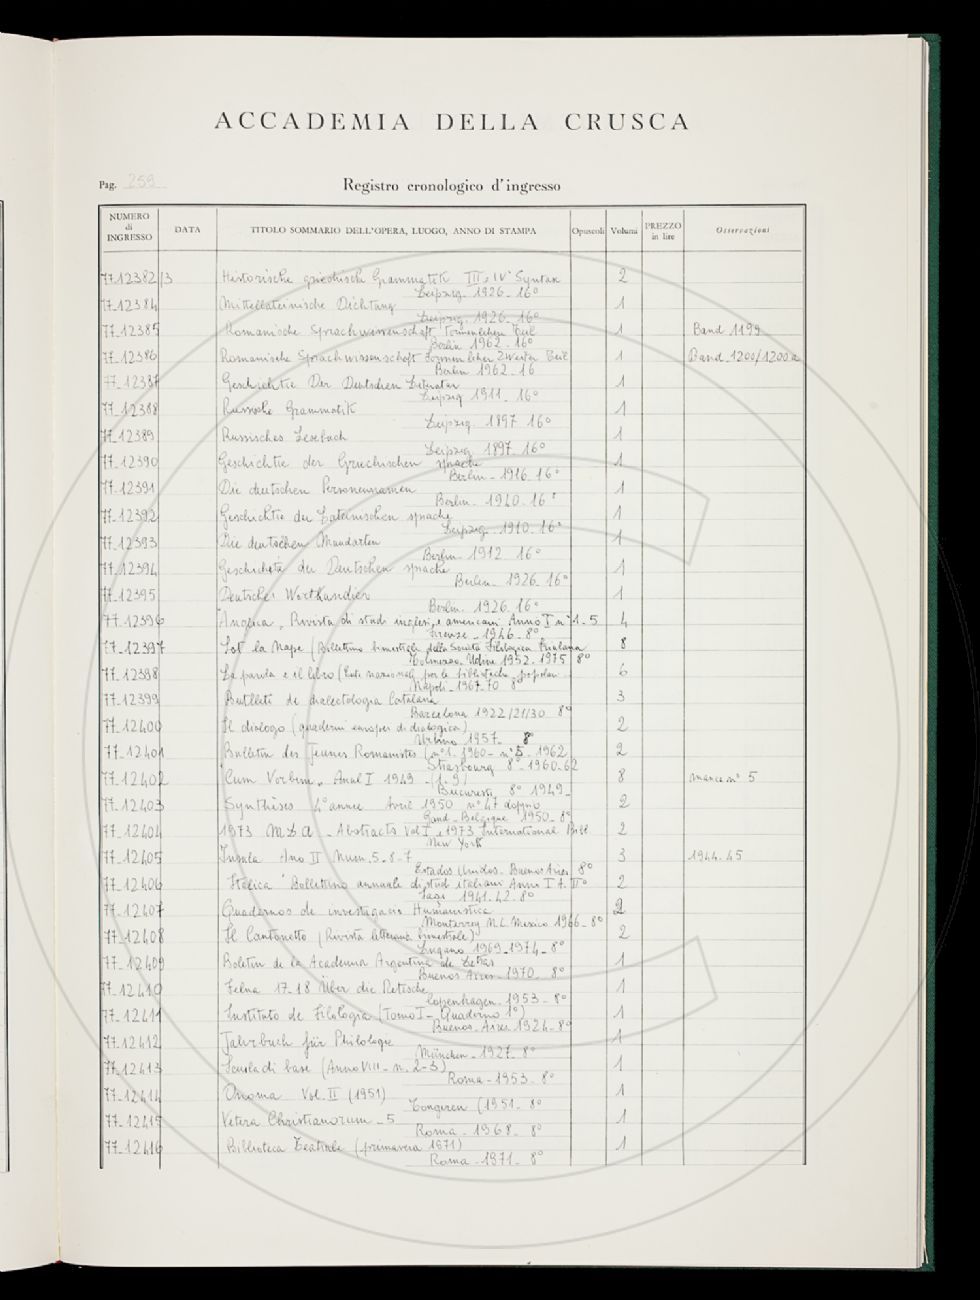 ACCADEMIA DELLA CRUSCA
Pag. 259
Registro cronologico d'ingresso
NUMERO di INGRESSO DATA TITOLO SOMMARIO DELL'OPERA, LUOGO, ANNO DI STAMPA Opuscoli Volumi PREZZO in lire Osservazioni
77.12382/3 Historische griechische Grammatik III e IV Syntax 2
Leipzig. 1926. 16°
77-12384 Mittellateinische Dichtung 1
Leipzig. 1926. 16°
77-12385 Romanische Sprachwissenschaft Teil 1 Band 1199
Berlin 1962. 16°
77-12386 Romanische Sprachwissenschaft Zweiter Teil 1 Band 1200/1200a
Berlin 1962-16
77-12387 Geschichtie Der Deutschen Literatur 1
Leipzig 1911. 16°
77-12388 Russische Grammatik 1
Leipzig. 1897 16°
77-12389 Russisches Lesebuch 1
Leipzig 1897. 16°
77-12390 Geschichtie der Griechischen sprache 1
Berlin - 1916. 16°
77-12391 Die deutschen Personennamen 1
Berlin. 1940. 16°
77-12392 Geschichtie der Lateinischen sprache 1
Leipzig. 1910. 16°
77-12393 Die deutschen Mundarten 1
Berlin. 1912. 16°
77-12394 Geschichte der Deutschen sprache 1
Berlin. 1926. 16°
77-12395 Deutsche Wortkunde 1
Berlin. 1926. 16°
77-12396 "Anglica" Rivista di studi inglesi e americani Anno I n° 1-5 4
Firenze - 1946 - 8°
77-12397 Sot la Nape (Bollettino bimestrale della Società Filologica Friulana 8
Tolmezzo. Udine 1952. 1975 8°
77-12398 La parola e il libro (Ente nazionale per le biblioteche popolari 6
Napoli - 1967-70 8°
77-12399 Butlletí de dialectologia Catalana 3
Barcelona 1922/21/30 8°
77-12400 Il dialogo (quaderni europei di dialogica) 2
Urbino 1957- 8°
77-12401 Bulletin des Jeunes Romanistes (n°1. 1960- n°5 1962 2
Strasbourg 8° 1960-62
77-12402 "Cum Vorbim" Anul I 1949 - (1-9) 8 manca n° 5
Bucuresti 8° 1949-
77-12403 Synthèses 4° année Avril 1950 n° 47 doppio 2
Gand - Belgique 1950 - 8°
77-12404 1973 MLA - Abstracts Vol I e 1973 International Bibl. 2
New York
77-12405 Insula Ano II Num. 5-8-7 3 1944-45
Estados Unidos. Buenos Aires 8°
77-12406 "Italica" Bollettino annuale di studi italiani Anno I e II° 2
1941-42. 8°
77-12407 Quadernos de investigacio Humanistica 2
Monterrey N.L. Mexico 1966 - 8°
77-12408 Il Cantonetto (Rivista letteraria bimestrale) 2
Lugano 1969-1974 - 8°
77-12409 Boletin de la Academia Argentina de Letras 1
Buenos Aires - 1970 8°
77-12410 17-18 Über die 1
Copenhagen. 1953 - 8°
77-12411 Instituto de Filologia (Tomo I - Quaderno 1°) 1
Buenos. Aires. 1924 - 8°
77-12412 Jahrbuch für Philologie 1
München - 1927. 8°
77-12413 Scuola di base (Anno VIII - n. 2-3) 1
Roma - 1953 - 8°
77-12414 Onoma Vol. II (1951) 1
Tongeren (1951 - 8°
77-12415 Vetera Christianorum - 5 1
Roma - 1968 - 8°
77-12416 Biblioteca Teatrale (primavera 1971) 1
Roma - 1971 - 8°